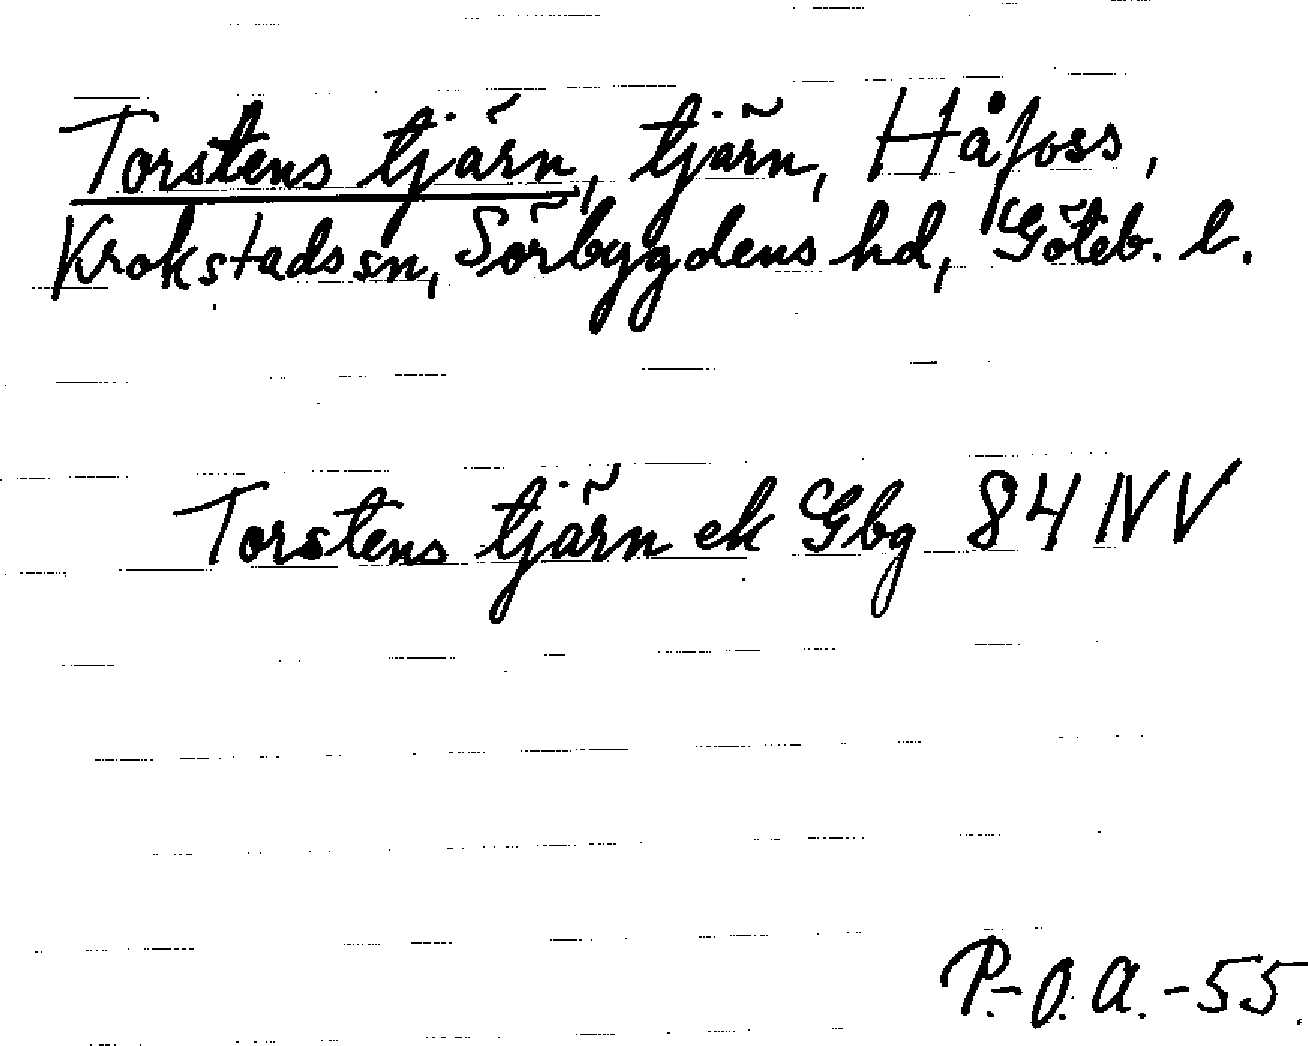 Torstens tjärn, tjärn, Håfoss,
Krokstads sn, Sörbygdens hd, Göteb. l.
Torstens tjärn ek Gbg 84 NV
P.-O. A. -55.